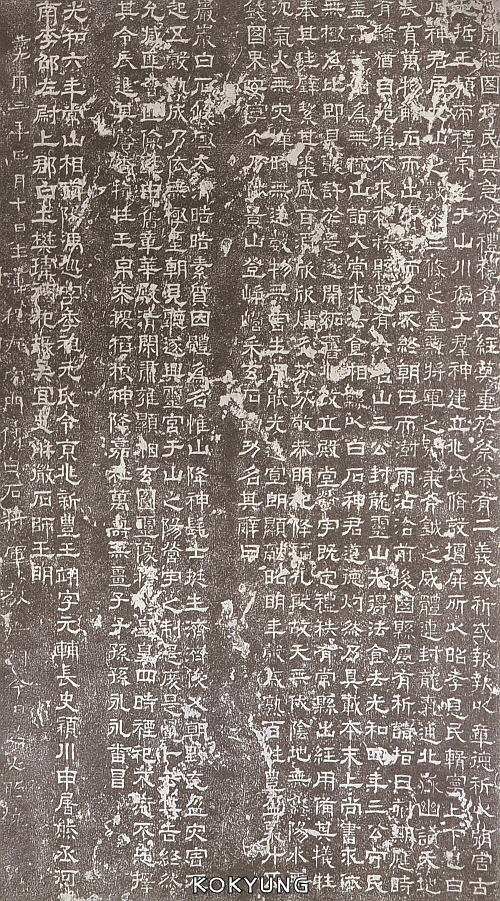 蓋聞經國序民莫急於禮禮有五經莫重於祭祭有二義或祈或報報以章德祈以弭害古
先哲王類帝禋宗望于山川徧于羣神建立兆域脩設壇屏所以昭孝息民輯寧上下也白
石神君居九山之數參三條之壹兼將軍之號秉斧鉞之威體連封龍氣通北嶽幽讚天地
長育萬物觸石而出膚寸而合不終朝日而澍雨沾洽前後國縣屢有祈請指日刻期應時
有驗猶自挹損不求禮秩縣界有六名山三公封龍靈山先得法食去光和四年三公守民
蓋高等始為無極山詣大常求法食相縣以白石神君道德灼然乃具載本末上尚書求依
無極為比即見聽許於是遂開拓舊兆改立殿堂營宇既定禮秩有常縣出經用備其犧牲
奉其珪璧絜其粢盛旨酒欣欣燔炙芬芬敬恭明祀降福孔殷故天無伏陰地無鱻陽水無
沉氣火無災燀時無逆數物無害生用能光遠宣朗顯融昭明年穀歲熟百姓豐盈粟升五
錢國界安寧爾乃陟景山登崢嶸采玄石勒功名其辭曰
巖巖白石峻極太清晧晧素質因體為名惟山降神髦士挺生濟濟俊乂朝野充盈災害不
起五穀熟成乃依無極聖朝見聽遂興靈宮于山之陽營宇之制是度是量卜云其吉終然
允臧匪奢匪儉率由舊章華殿清閑肅雍顯相玄圖靈像穆穆皇皇四時禋祀不愆不忘擇
其令辰進其馨香犧牲玉帛黍稷稻粮神降嘉祉萬壽無疆子子孫孫永永番昌
光和六年常山相南陽馮巡字季祖元氏令京兆新豐王翊字元輔長史潁川申屠熊丞河
南李邵左尉上郡白土樊瑋祠祀掾吳宜史解微石師王明
燕元璽三年正月十日主簿程疵家門傳白石將軍教
KOKYUNG